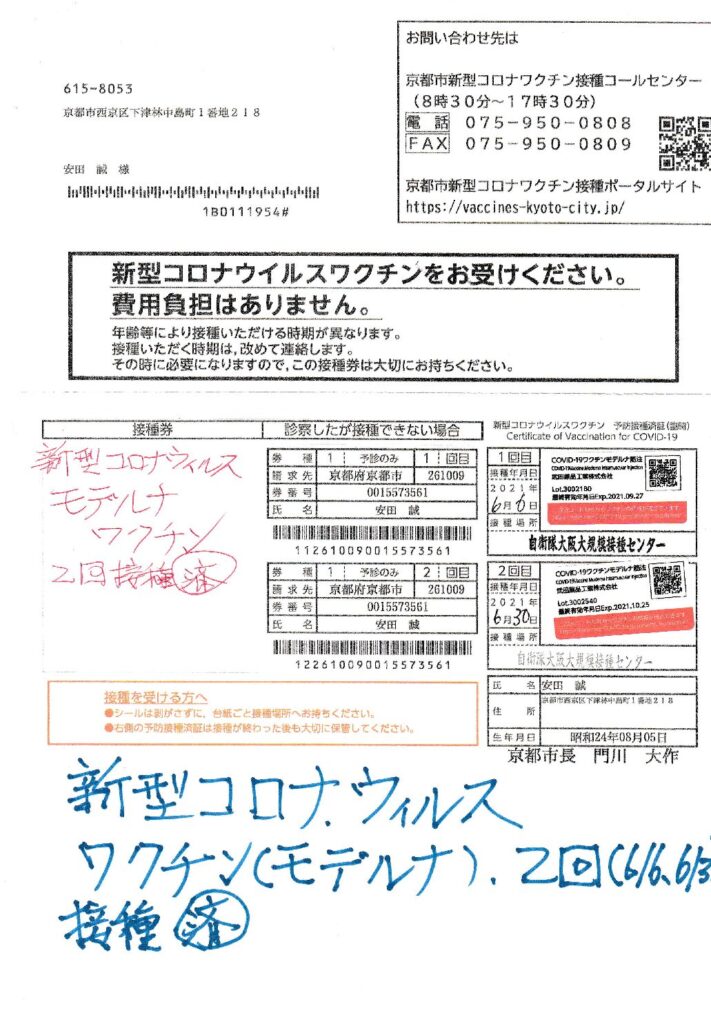 615-8053
京都市西京区下津林中島町1番地218
安田 誠 様
1B0111954#
お問い合わせ先は
京都市新型コロナワクチン接種コールセンター
(8時30分~17時30分)
電話 075-950-0808
FAX 075-950-0809
京都市新型コロナワクチン接種ポータルサイト
https://vaccines-kyoto-city.jp/
新型コロナウイルスワクチンをお受けください。
費用負担はありません。
年齢等により接種いただける時期が異なります。
接種いただく時期は,改めて連絡します。
その時に必要になりますので,この接種券は大切にお持ちください。
接種券
新型コロナウィルス
モデルナ
ワクチン
2回接種済
診察したが接種できない場合
券種 1 予診のみ 1 回目
請求先 京都府京都市 261009
券番号 0015573561
氏名 安田 誠
112610090015573561
券種 1 予診のみ 2 回目
請求先 京都府京都市 261009
券番号 0015573561
氏名 安田 誠
122610090015573561
新型コロナウイルスワクチン 予防接種済証(臨時)
Certificate of Vaccination for COVID-19
1回目
接種年月日
2021年
6月6日
接種場所
COVID-19ワクチンモデルナ筋注
COVID-19 Vaccine Moderna Intramuscular Injection
武田薬品工業株式会社
Lot.3002180
最終有効年月日Exp.2021.09.27
自衛隊大阪大規模接種センター
2回目
接種年月日
2021年
6月30日
接種場所
COVID-19ワクチンモデルナ筋注
COVID-19 Vaccine Moderna Intramuscular Injection
武田薬品工業株式会社
Lot.3002540
最終有効年月日Exp.2021.10.25
自衛隊大阪大規模接種センター
氏名 安田 誠
住所 京都市西京区下津林中島町1番地218
生年月日 昭和24年08月05日
京都市長 門川 大作
接種を受ける方へ
●シールは剥がさずに、台紙ごと接種場所へお持ちください。
●右側の予防接種済証は接種が終わった後も大切に保管してください。
新型コロナ.ウィルス
ワクチン(モデルナ).2回(6/6、6/3
接種済